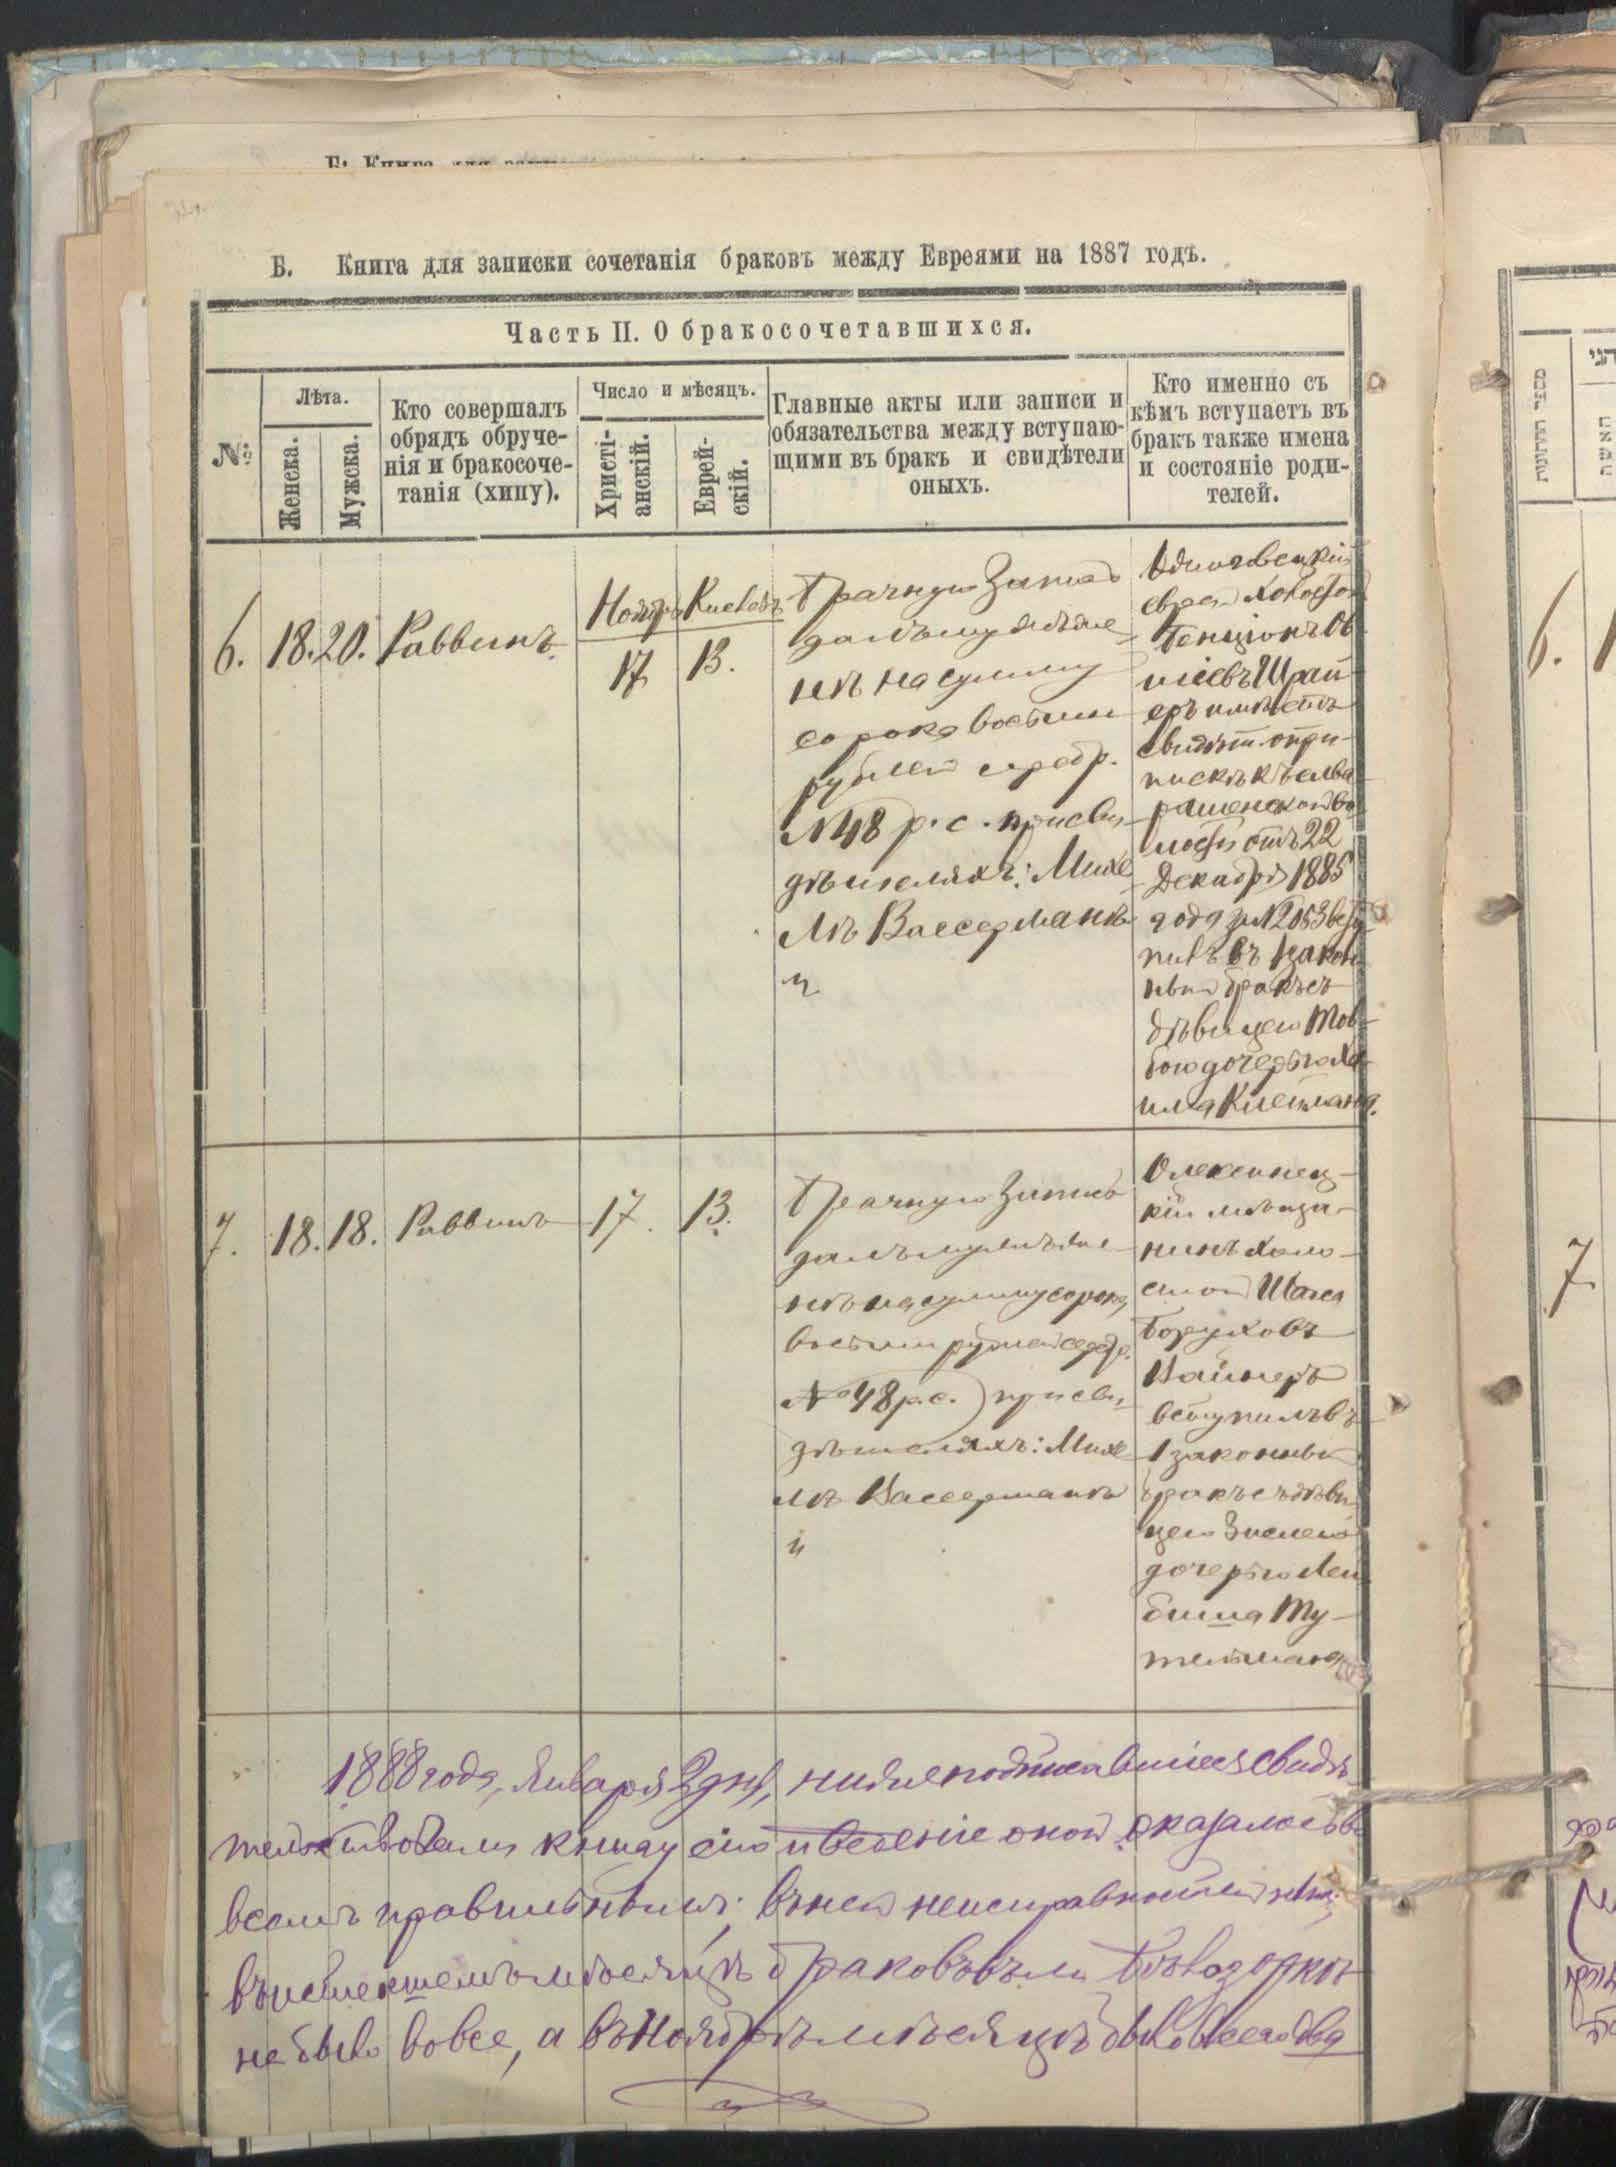 Б. Книга для записки сочетанія браковъ между Евреями на 1887 годъ.
Часть II. О бракосочетавшихся.
№
Лѣта.
Женска.
Мужска.
Кто совершалъ
обрядъ обруче-
нія и бракосоче-
танія (хипу).
Число и мѣсяцъ.
Христі-
анскій.
Еврей-
скій.
Главные акты или записи и
обязательства между вступаю-
щими въ бракъ и свидѣтели
оныхъ.
Кто именно съ
кѣмъ вступаетъ въ
бракъ также имена
и состояніе роди-
телей.
6. 18. 20. Раввинъ.
Ноябрь Кислевъ
17 13.
Брачную Запись
далъ мужъ же-
нѣ на сумму
сорокъ восемь
рублей серебр.
№ 48 р. с. при сви-
дѣтеляхъ: Михе
лѣ Вассерманѣ
и
еврей холостой
Бенціонъ
Шрай
еръ
свидѣт. о при-
пискѣ къ
волости отъ 22
Декабря 1885
года за № 2053 всту-
пилъ въ 1 закон-
ный бракъ съ
дѣвицею Тов-
бою дочерью Ха-
има
7. 18. 18. Раввинъ 17. 13.
Брачную Запись
далъ мужъ же-
нѣ на сумму сорокъ
восемь рублей серебр.
№ 48 р. с.) при сви-
дѣтеляхъ: Михе
лѣ Вассерманѣ
и
Олексинец-
кій мѣща-
нинъ холо-
стой
Боруховъ
Вайнеръ
вступилъ въ
1 законный
бракъ съ дѣви-
цею Зислею
дочерью Лей
биша Ту-
тельмана
1888 года, Января 2 дня, нижеподписавшіеся свидѣ-
тельствовали книгу сію и веденіе оной оказалось во
всемъ правильнымъ; въ ней неисправностей нѣтъ;
въ истекшемъ мѣсяцѣ браковъ въ м. Бѣлозоркѣ
не было вовсе, а въ Ноябрѣ мѣсяцѣ было всего два
6.
7
מספר החתונות
האשה